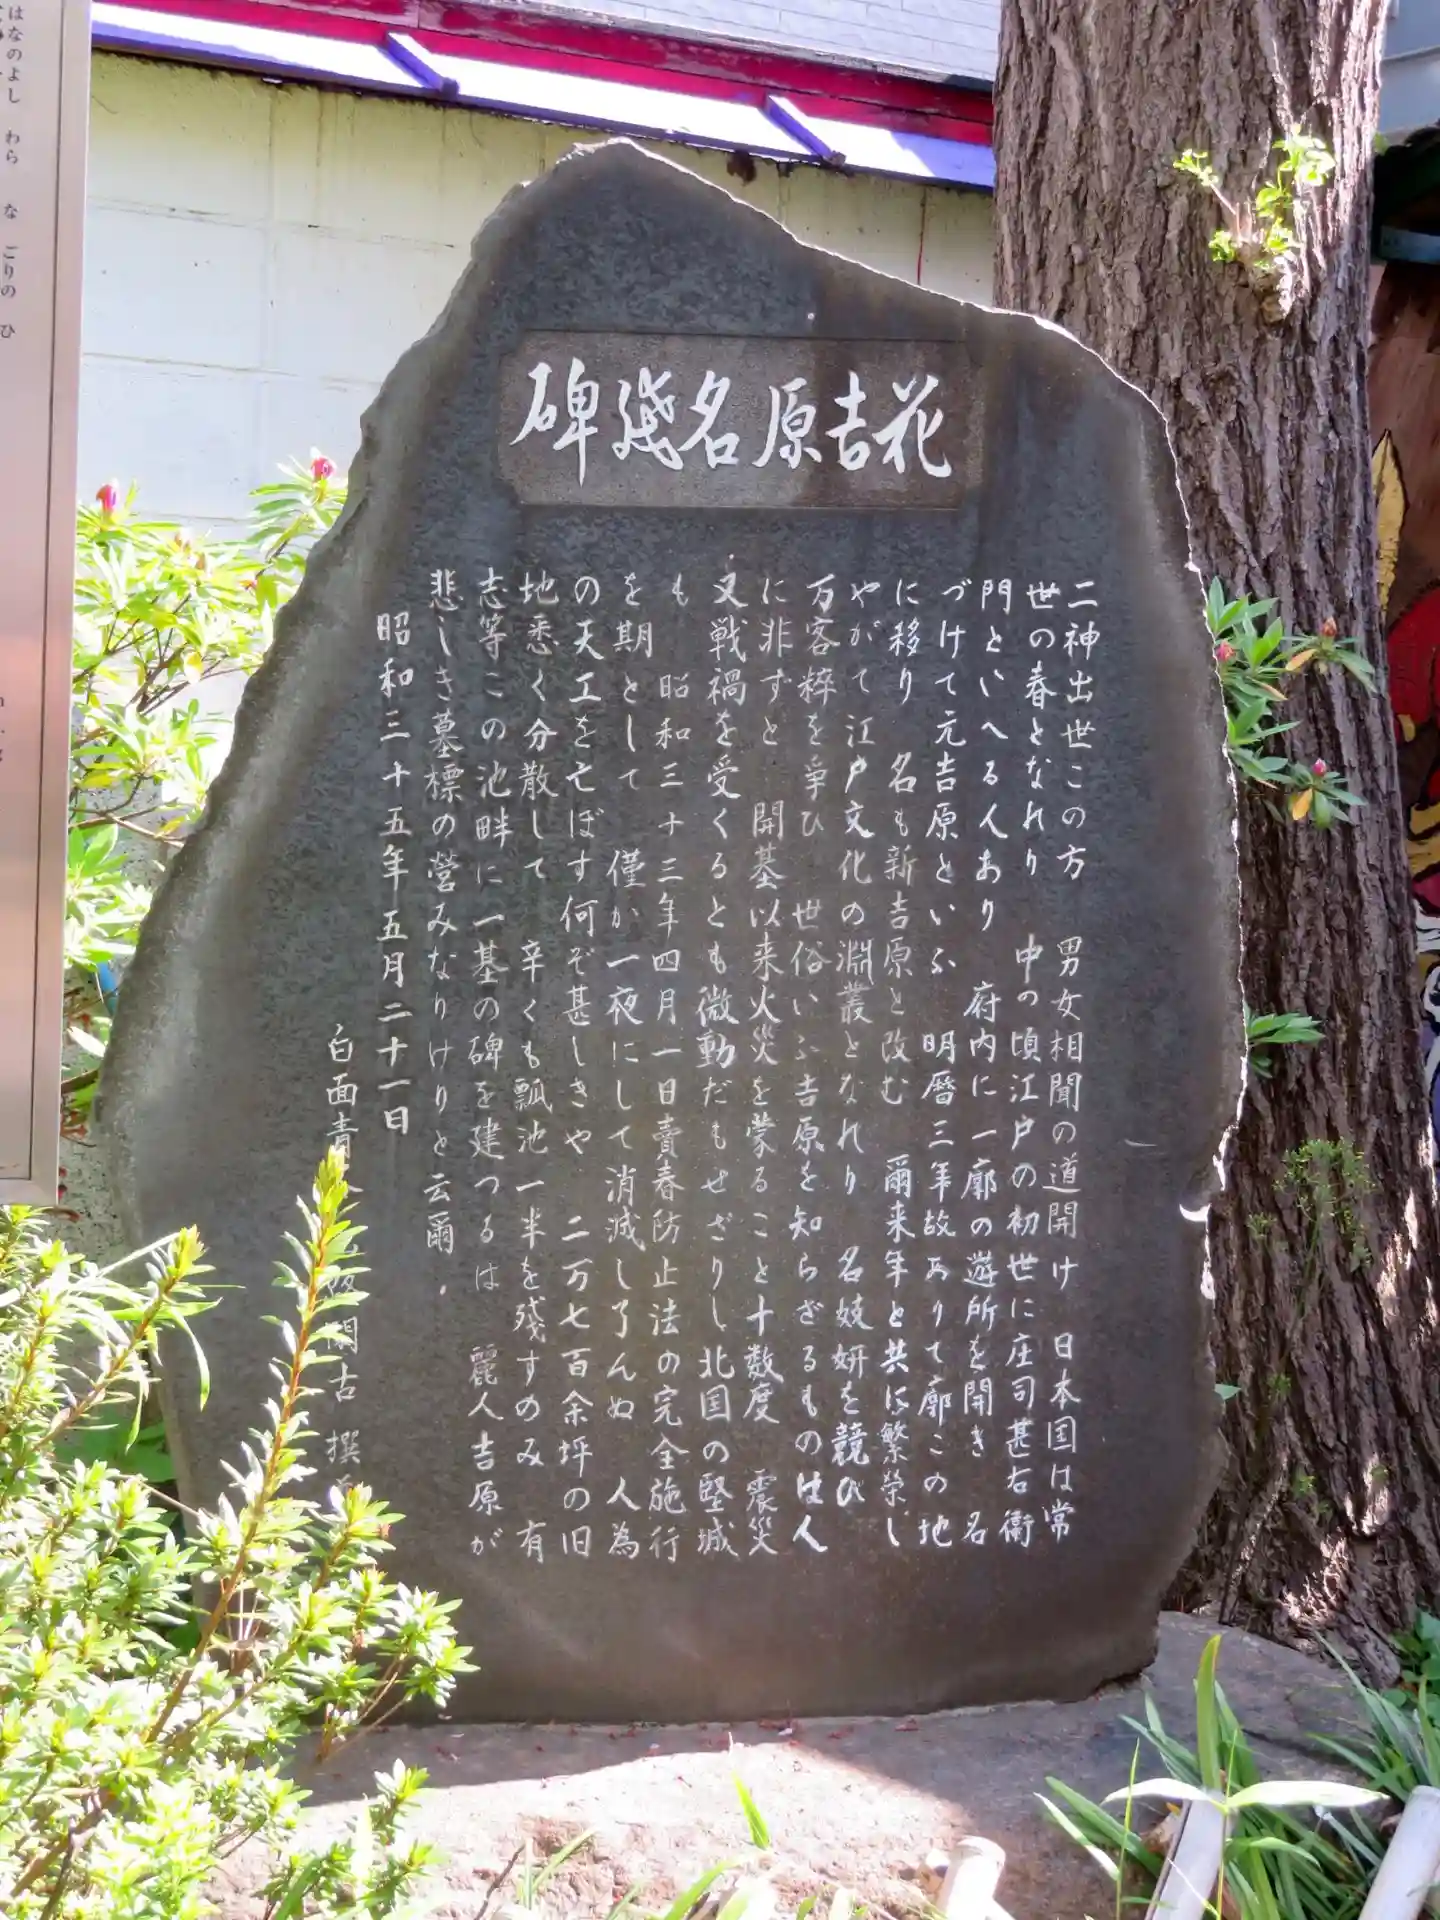 はなのよし わら な ごりの ひ
花吉原名残碑
二神出世この方 男女相聞の道開け 日本国は常
世の春となれり 中の頃江戸の初世に庄司甚右衛
門といへる人あり 府内に一廓の遊所を開き 名
づけて元吉原といふ 明暦三年故ありて廓この地
に移り 名も新吉原と改む 爾来年と共に繁栄し
やがて江戸文化の淵叢となれり 名妓妍を競ひ
万客粋を争ひ 世俗いふ吉原を知らざるものは人
に非ずと 開基以来火災を蒙ること十数度 震災
又戦禍を受くるとも微動だもせざりし北国の堅城
も 昭和三十三年四月一日賣春防止法の完全施行
を期として 僅か一夜にして消滅し了んぬ 人為
の天工を亡ぼす何ぞ甚しきや 二万七百余坪の旧
地悉く分散して 辛くも瓢池一半を残すのみ 有
志等この池畔に一基の碑を建つるは 麗人吉原が
悲しき墓標の営みなりけりと云爾．
昭和三十五年五月二十一日
白面青 阪開古 撰